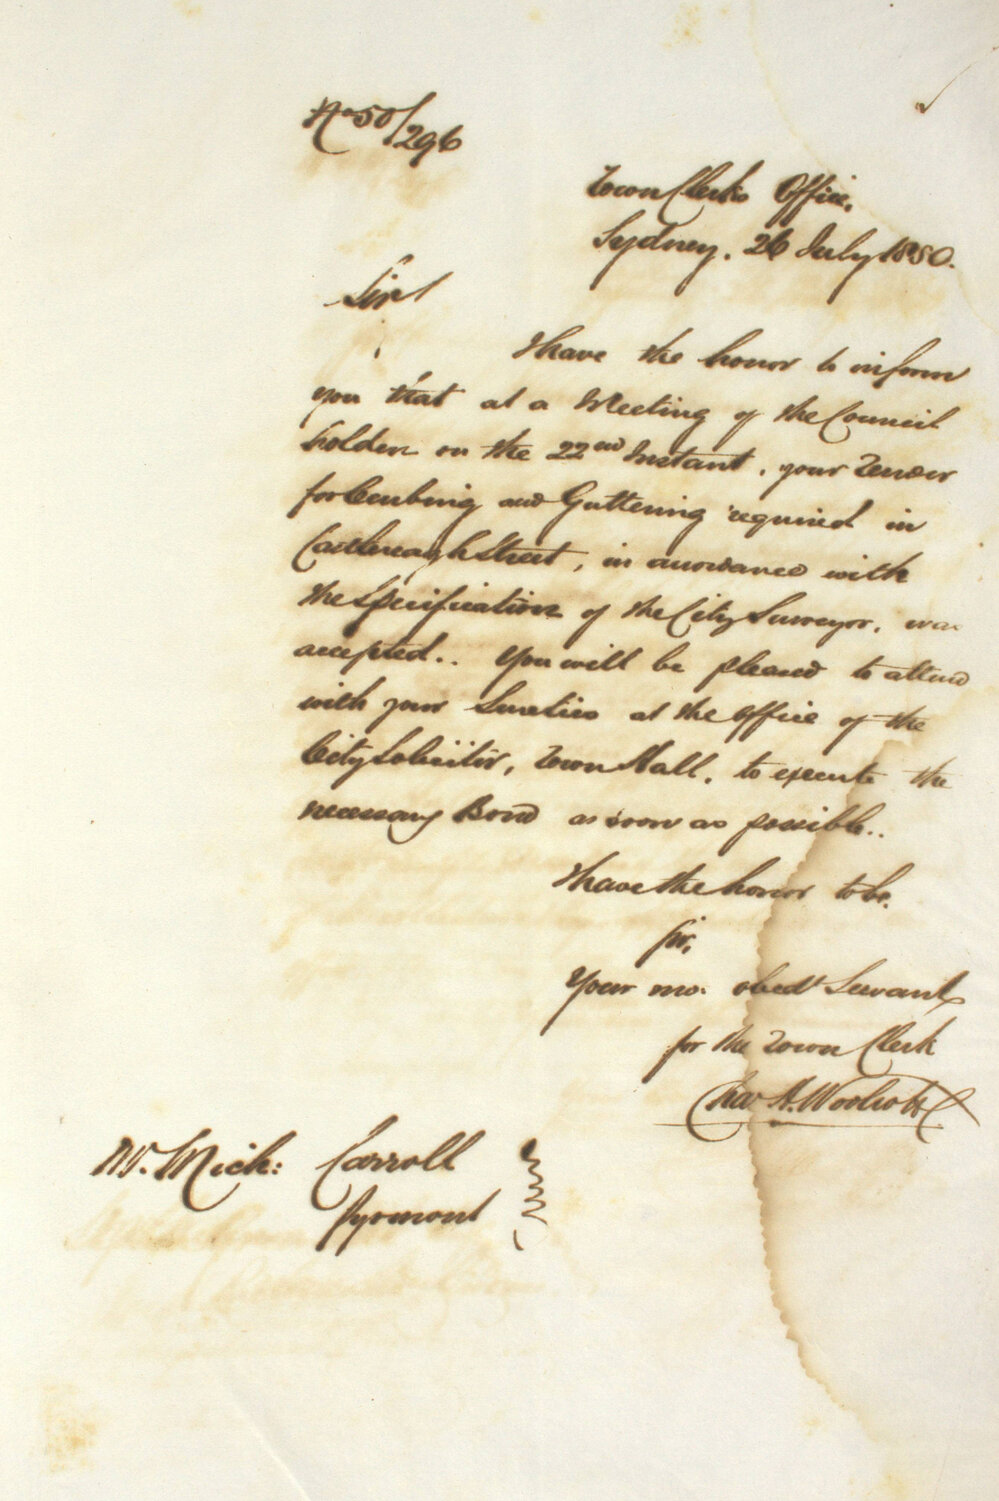 No 50/296
Town Clerks Office,
Sydney. 26 July 1850.
Sir/
I have the honor to inform
you that at a Meeting of the Council
holden on the 22nd Instant, your Tender
for Curbing and Guttering required in
Castlereagh Street, in accordance with
the Specification of the City Surveyor, was
accepted.. You will be pleased to attend
with your Sureties at the Office of the
City Solicitor, Town Hall, to execute the
necessary Bond as soon as possible..
I have the honor to be.
Sir,
Your mo. obedt Servant
for the Town Clerk
Chas H. Woolcott
Mr. Mich: Carroll
Pyrmont